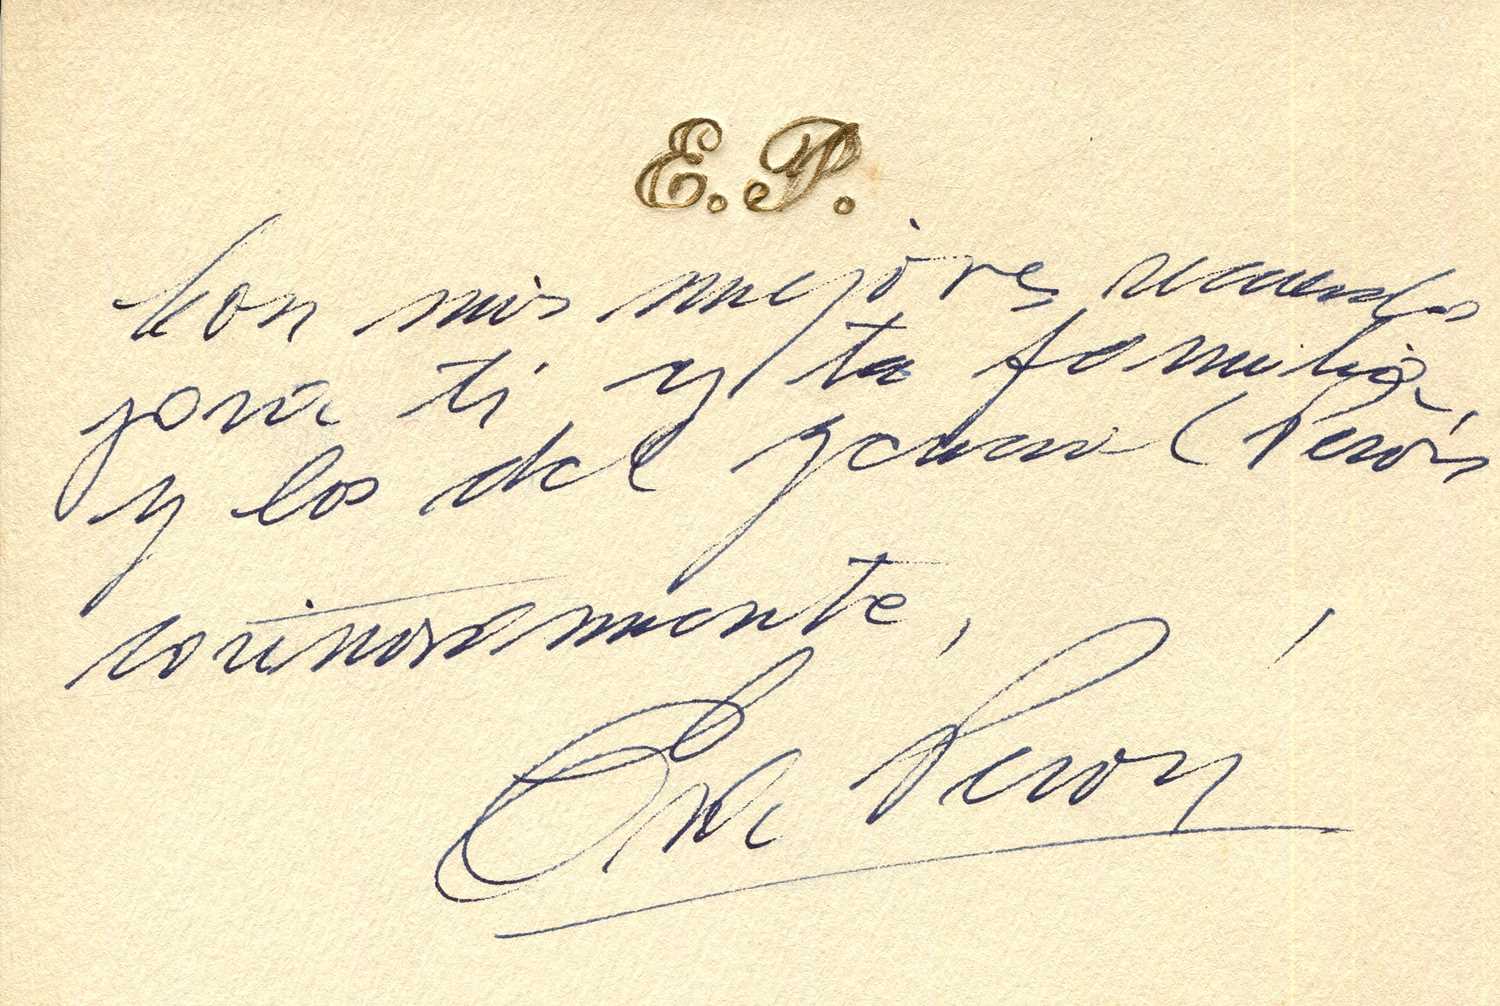 E. P.
Con mis mejores recuerdos
para ti y tu familia,
y los del general Perón
cariñosamente,
Eva Perón